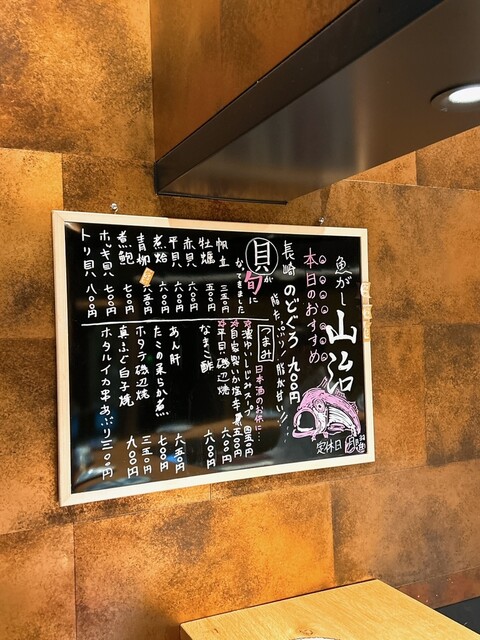 魚がし
山治
本日のおすすめ
長崎 のどぐろ 九〇〇円
脂たっぷり! 脂が甘い!!
定休日 日・祝日
貝が旬に
なってきました
帆立 三五〇円
牡蠣 五〇〇円
赤貝 六〇〇円
平貝 六〇〇円
煮蛤 六〇〇円
青柳 六五〇円
煮鮑 七〇〇円
ホッキ貝 七〇〇円
トリ貝 八〇〇円
つまみ
日本酒のお供に…
☆濃ゆいしじみスープ 四五〇円
☆自家製いか塩辛 五〇〇円
☆平貝磯辺焼 六〇〇円
なまこ酢 六〇〇円
あん肝 六五〇円
たこの柔らか煮 七〇〇円
ホタテ磯辺焼 三五〇円
真ふぐ白子焼 九〇〇円
ホタルイカ串あぶり 三〇〇円